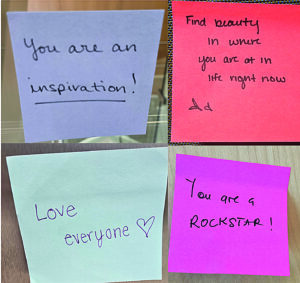 You are an
inspiration!
Find beauty
in where
you are at in
life right now
Love
everyone
You are a
ROCKSTAR!